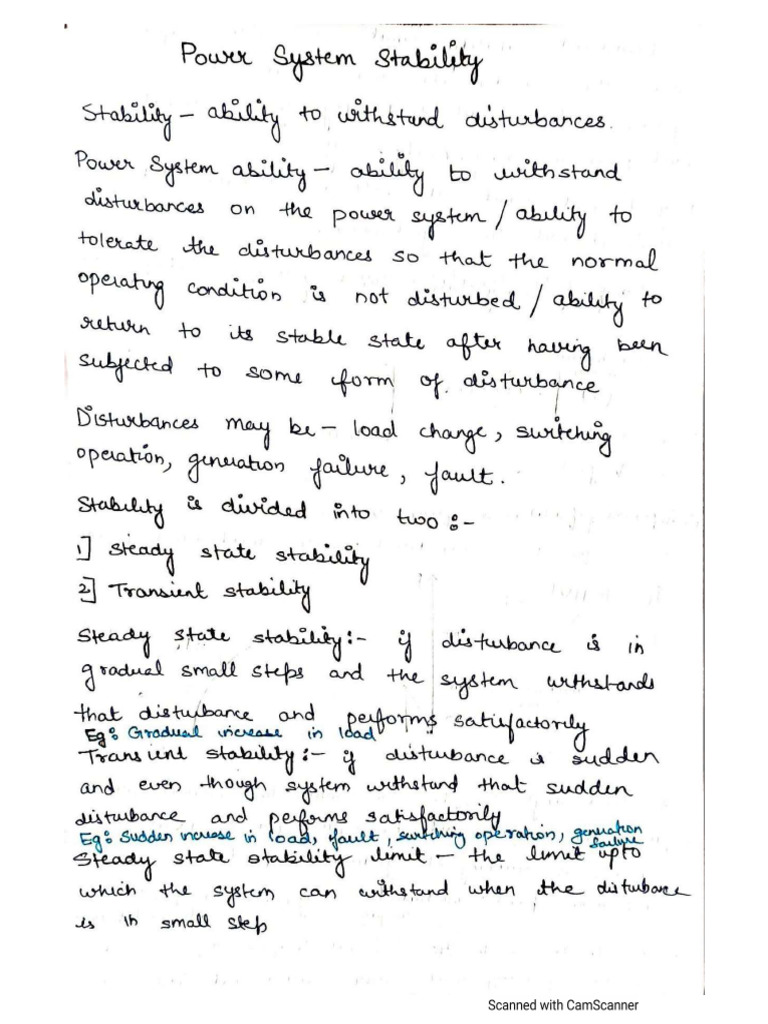 Power System Stability
Stability - ability to withstand disturbances.
Power System ability - ability to withstand
disturbances on the power system / ability to
tolerate the disturbances so that the normal
operating condition is not disturbed / ability to
return to its stable state after having been
subjected to some form of disturbance
Disturbances may be - load change, switching
operation, generation failure, fault.
Stability is divided into two :-
1] Steady state stability
2] Transient stability
Steady state stability :- if disturbance is in
gradual small steps and the system withstands
that disturbance and performs satisfactorily
Eg: Gradual increase in load
Transient stability :- if disturbance is sudden
and even though system withstand that sudden
disturbance and performs satisfactorily
Eg: Sudden increase in load, fault, switching operation, generation
failure
Steady state stability limit - the limit upto
which the system can withstand when the disturbance
is in small step
Scanned with CamScanner